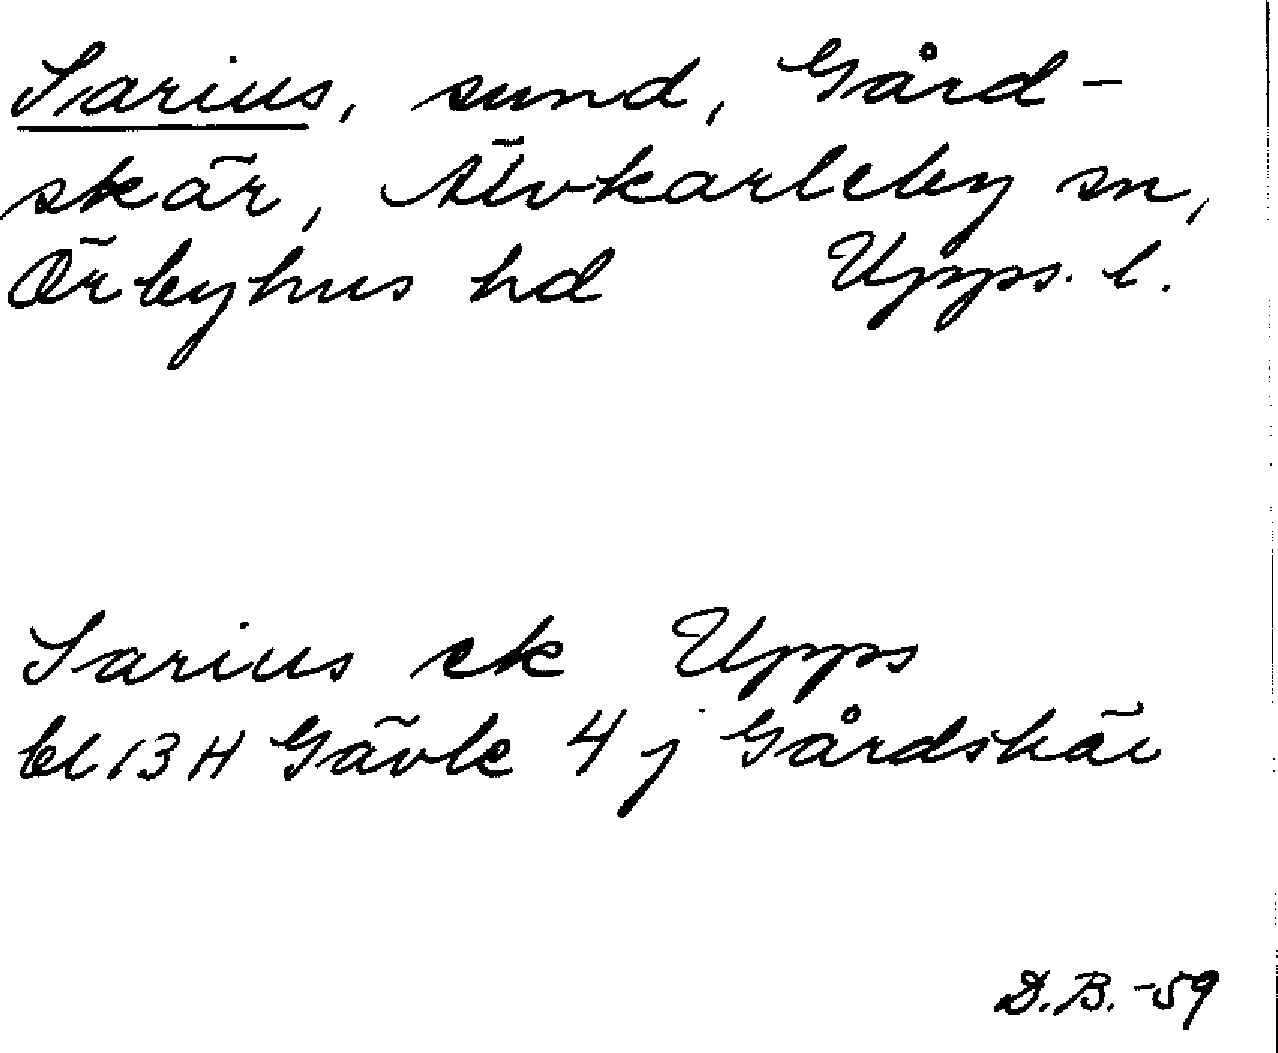 Sarius, sund, Gård-
skär, Älvkarleby sn,
Örbyhus hd Upps. l.
Sarius ek Upps
bl 13 H Gävle 4 j Gårdskär
D.B. -59